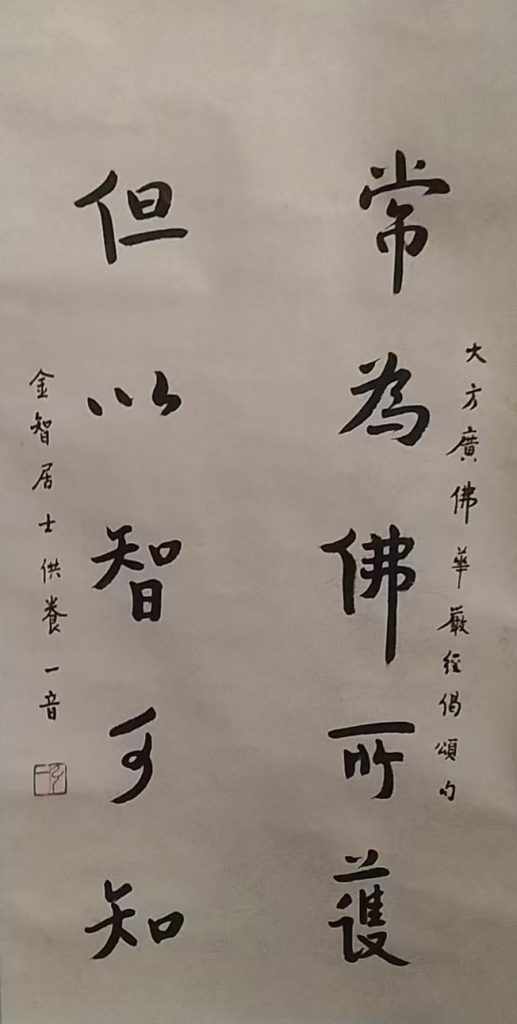 大方廣佛華嚴經偈頌句
常為佛所護
但以智可知
金智居士供養一音
弘一